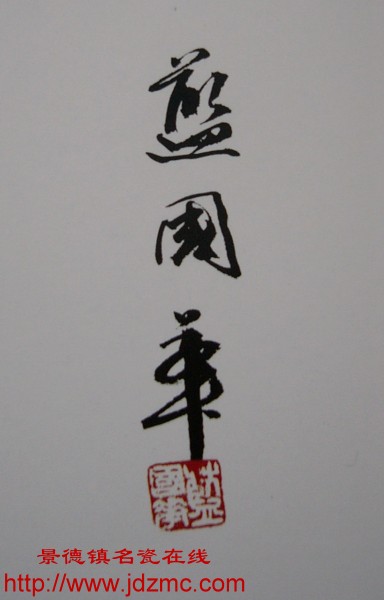 藍
國
華
景德镇名瓷在线
http://www.jdzmc.com